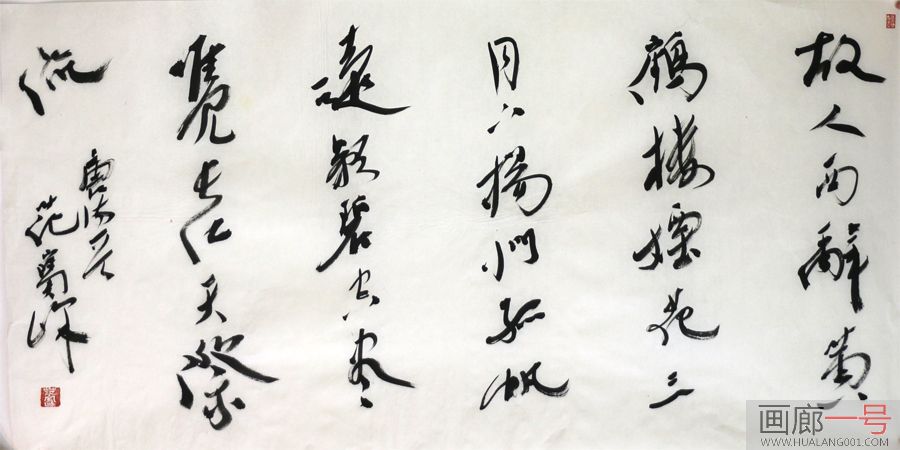 故人西辭黃
鶴樓煙花三
月下揚州孤帆
遠影碧空盡
唯見長江天際
流
唐詩一首
范萬
画廊一号
WWW.HUALANG001.COM